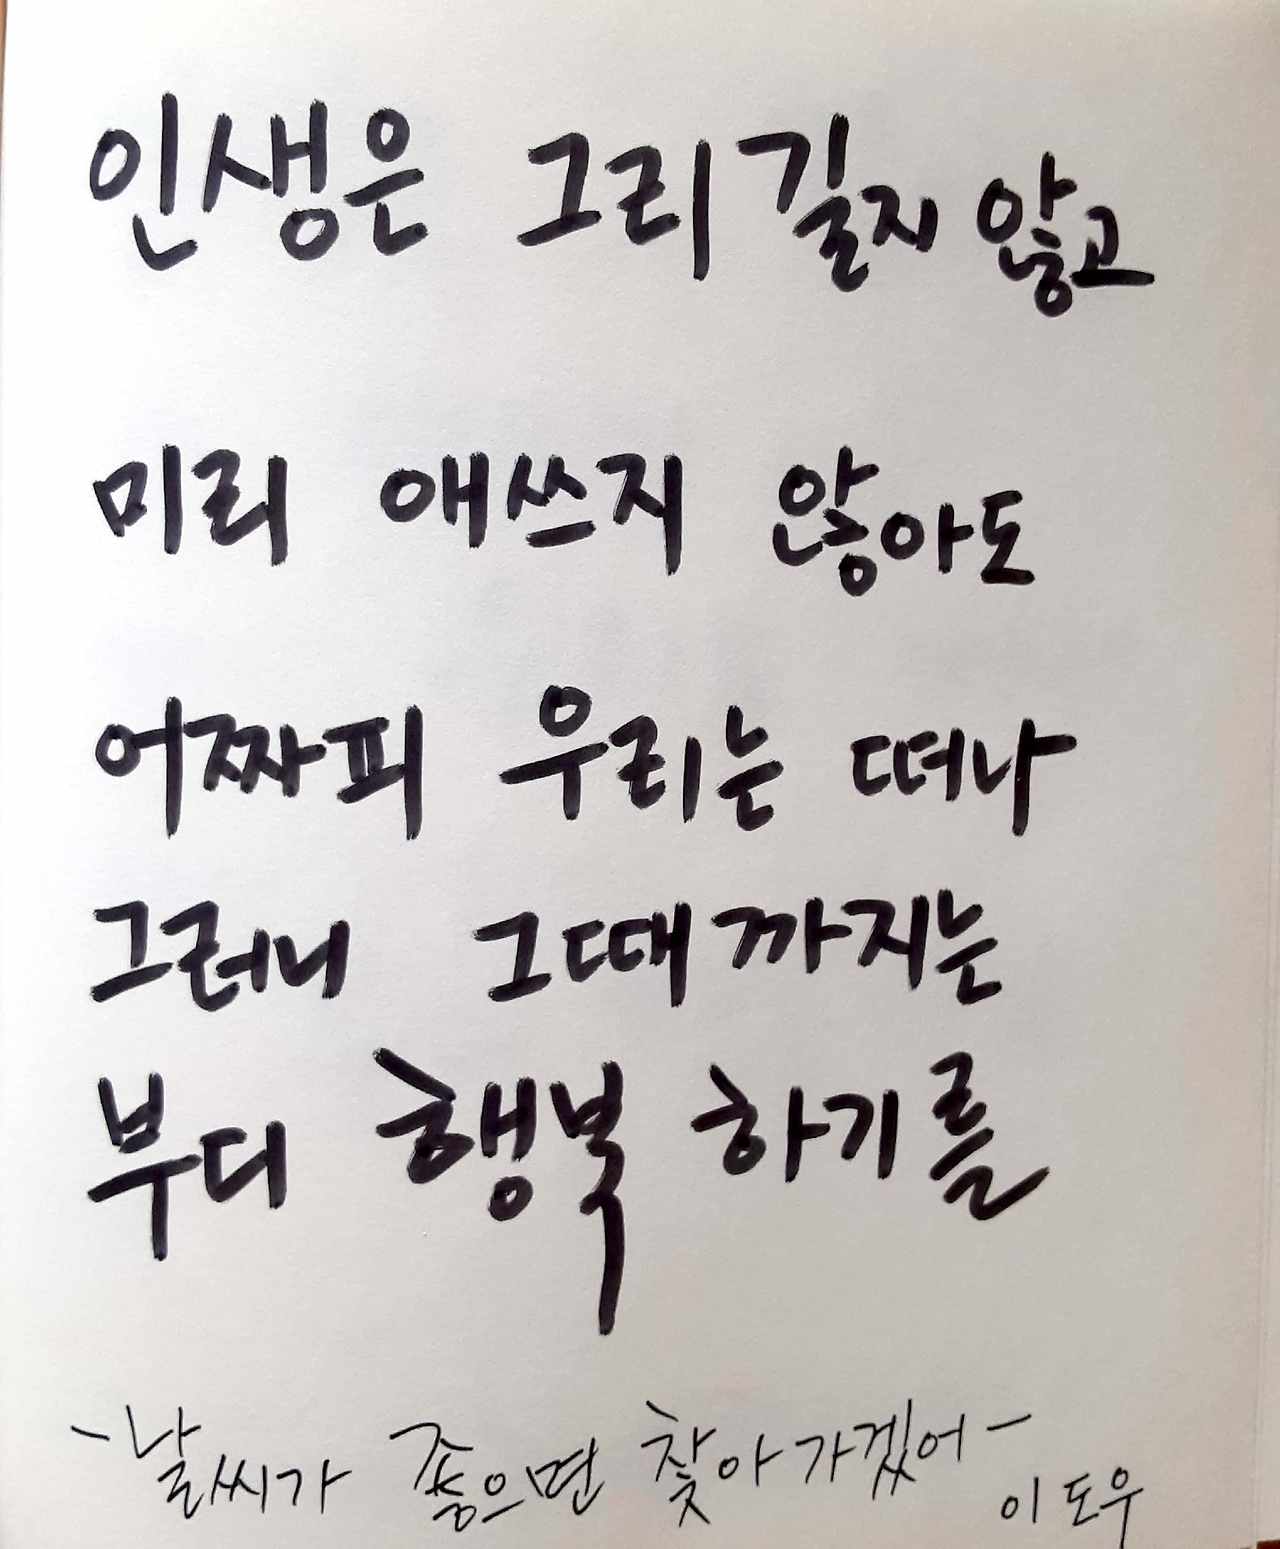 인생은 그리 길지 않고
미리 애쓰지 않아도
어짜피 우리는 떠나
그러니 그때까지는
부디 행복 하기를
-날씨가 좋으면 찾아가겠어-
이도우